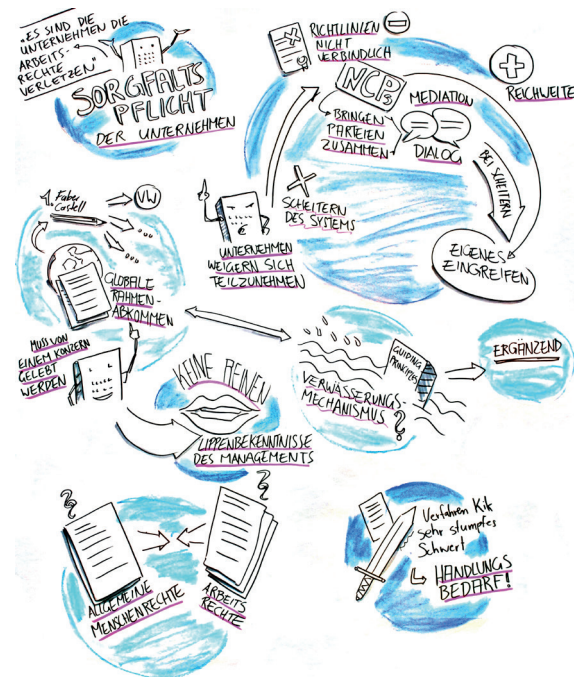 „ES SIND DIE
UNTERNEHMEN DIE
ARBEITS-
RECHTE
VERLETZEN"
SORGFALTS
PFLICHT
DER UNTERNEHMEN
RICHTLINIEN
NICHT
VERBINDLICH
NCPs
MEDIATION
BRINGEN
PARTEIEN
ZUSAMMEN
DIALOG
REICHWEITE
BEI SCHEITERN
EIGENES
EINGREIFEN
SCHEITERN
DES SYSTEMS
UNTERNEHMEN
WEIGERN SICH
TEILZUNEHMEN
1. Faber
Castell
VW
GLOBALE
RAHMEN-
ABKOMMEN
MUSS VON
EINEM KONZERN
GELEBT
WERDEN
KEINE REINEN
LIPPENBEKENNTNISSE
DES MANAGEMENTS
GUIDING
PRINCIPLES
VERWÄSSERUNGS-
MECHANISMUS?
ERGÄNZEND
ALLGEMEINE
MENSCHENRECHTE
ARBEITS
RECHTE
Verfahren Kik
sehr stumpfes
Schwert
HANDLUNGS
BEDARF!